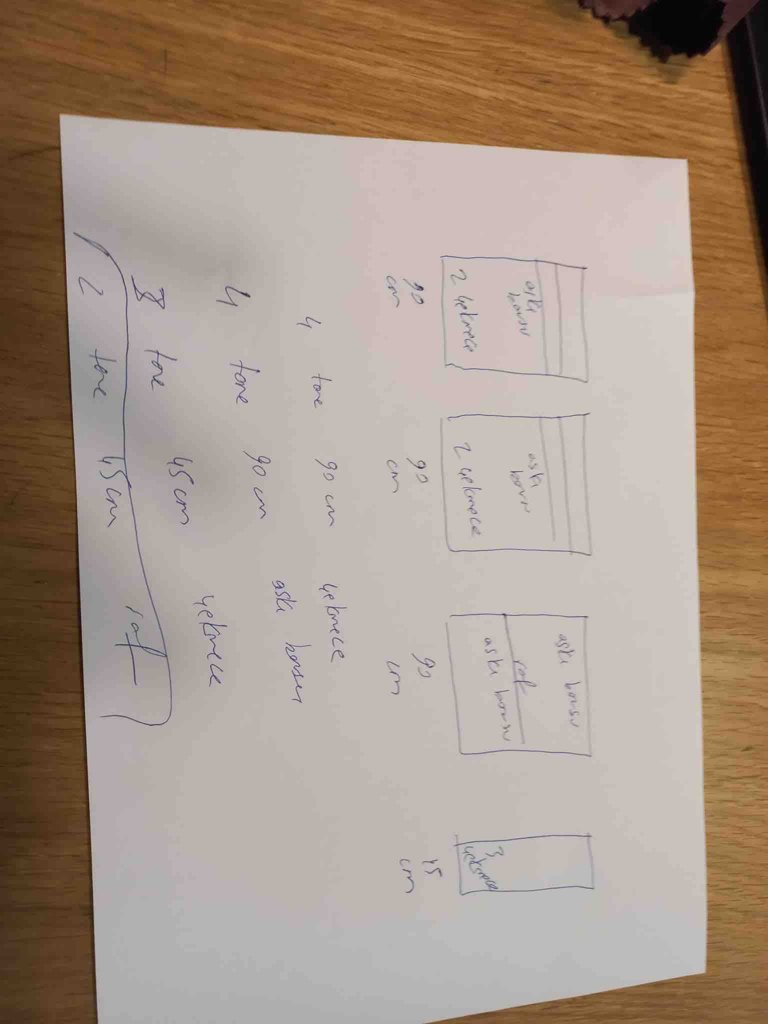 askı borusu
2 çekmece
90 cm
askı borusu
2 çekmece
90 cm
askı borusu
raf
askı borusu
90 cm
3 çekmece
45 cm
4 tane 90 cm çekmece
4 tane 90 cm askı borusu
3 tane 45 cm çekmece
2 tane 45 cm raf